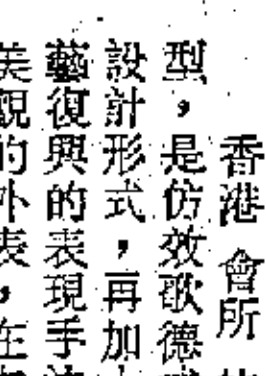 香港會所
型，是仿效歌德
設計形式，再加
藝復興的表現手
美觀的外表，在